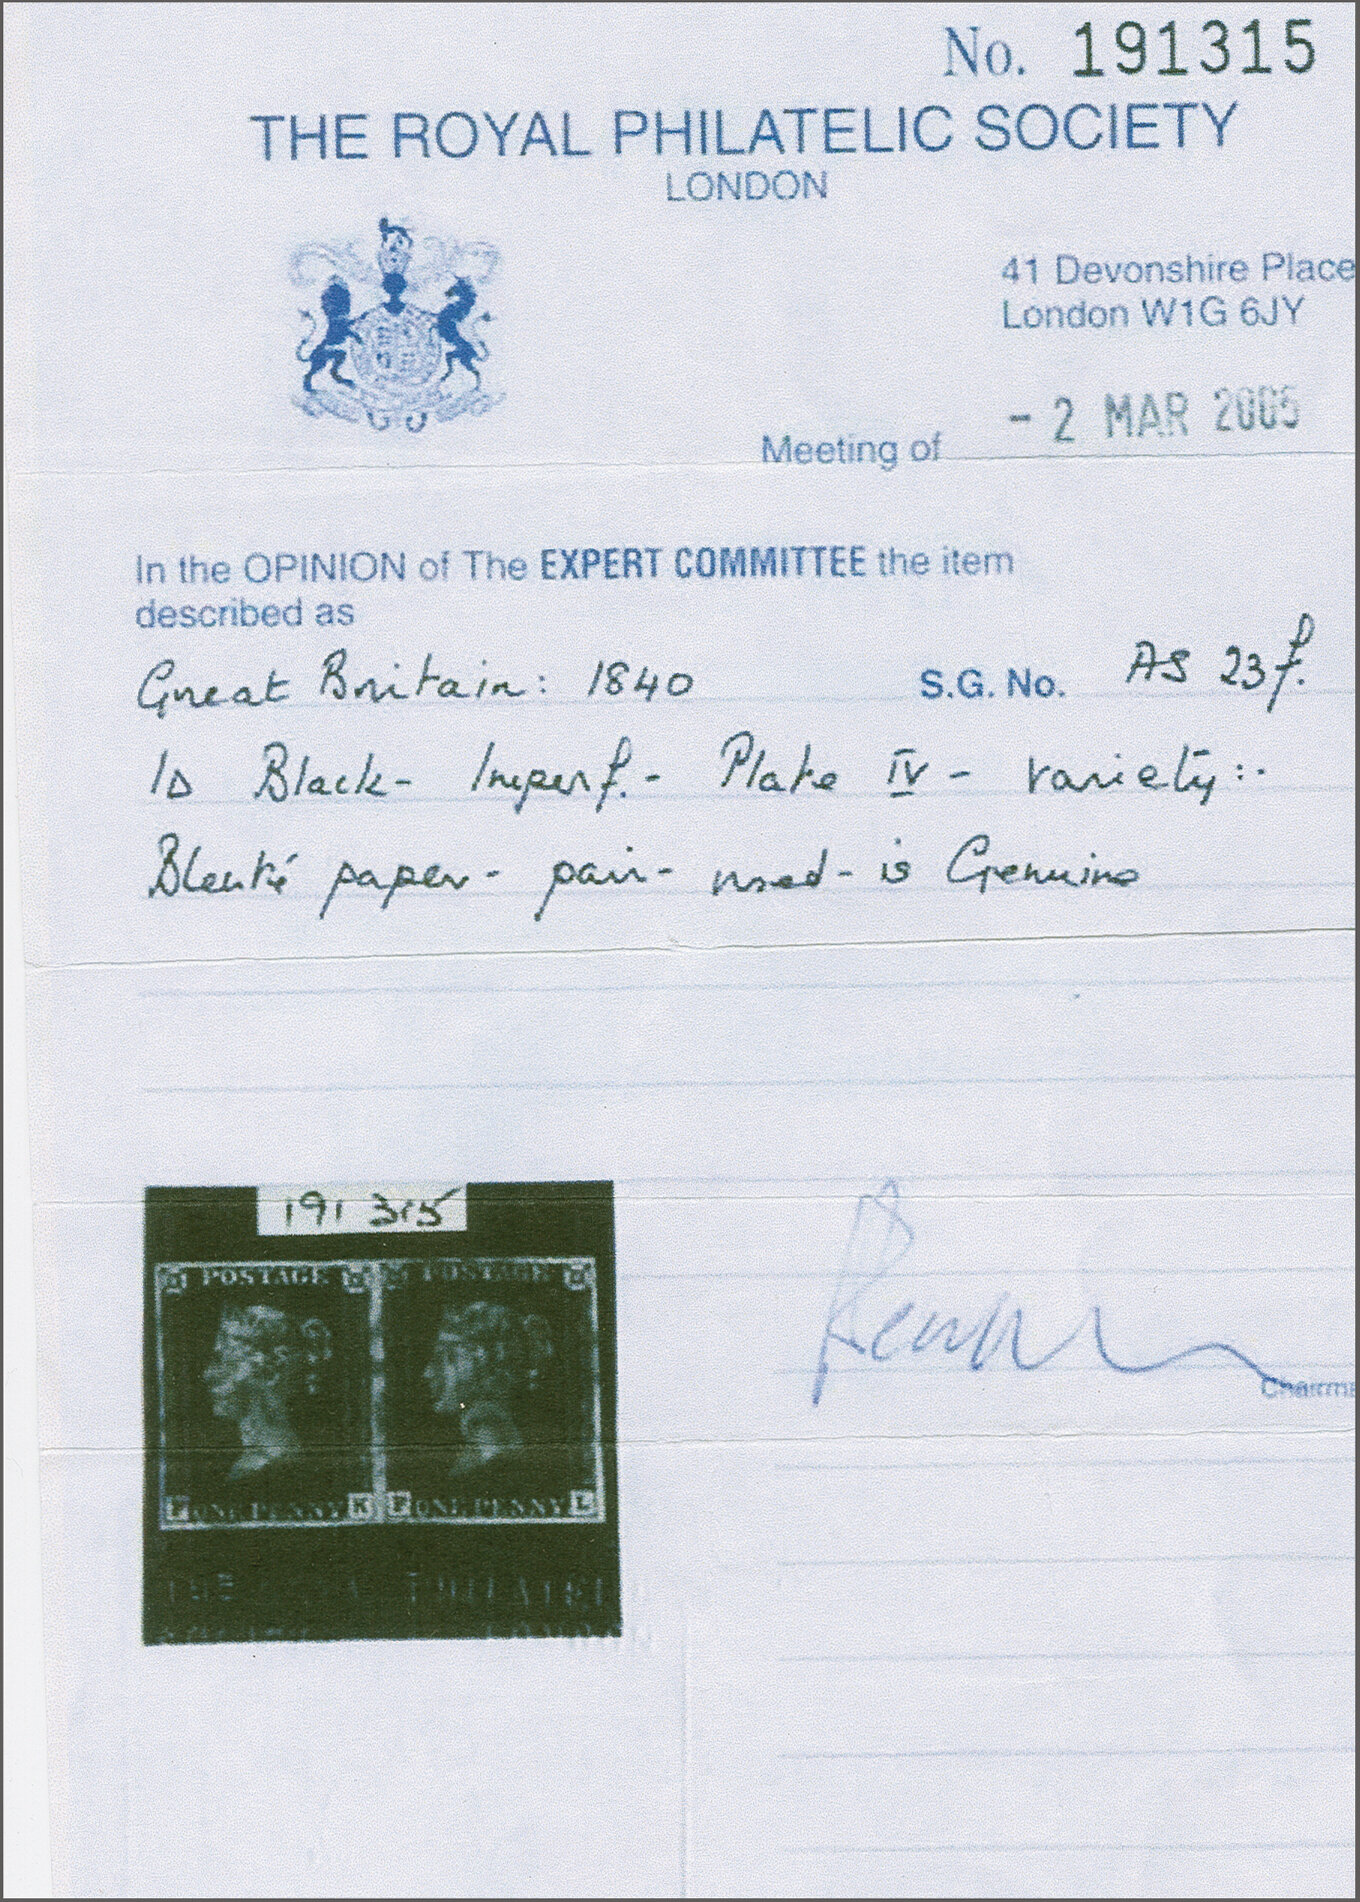 No. 191315
THE ROYAL PHILATELIC SOCIETY
LONDON
41 Devonshire Place
London W1G 6JY
Meeting of - 2 MAR 2005
In the OPINION of The EXPERT COMMITTEE the item
described as
Great Britain: 1840 S.G. No. AS 23f.
1D Black- Imperf.- Plate IV - variety:-
Bleuté paper- pair- used- is Genuine
191 315
POSTAGE POSTAGE
F ONE PENNY K F ONE PENNY L
Chairma